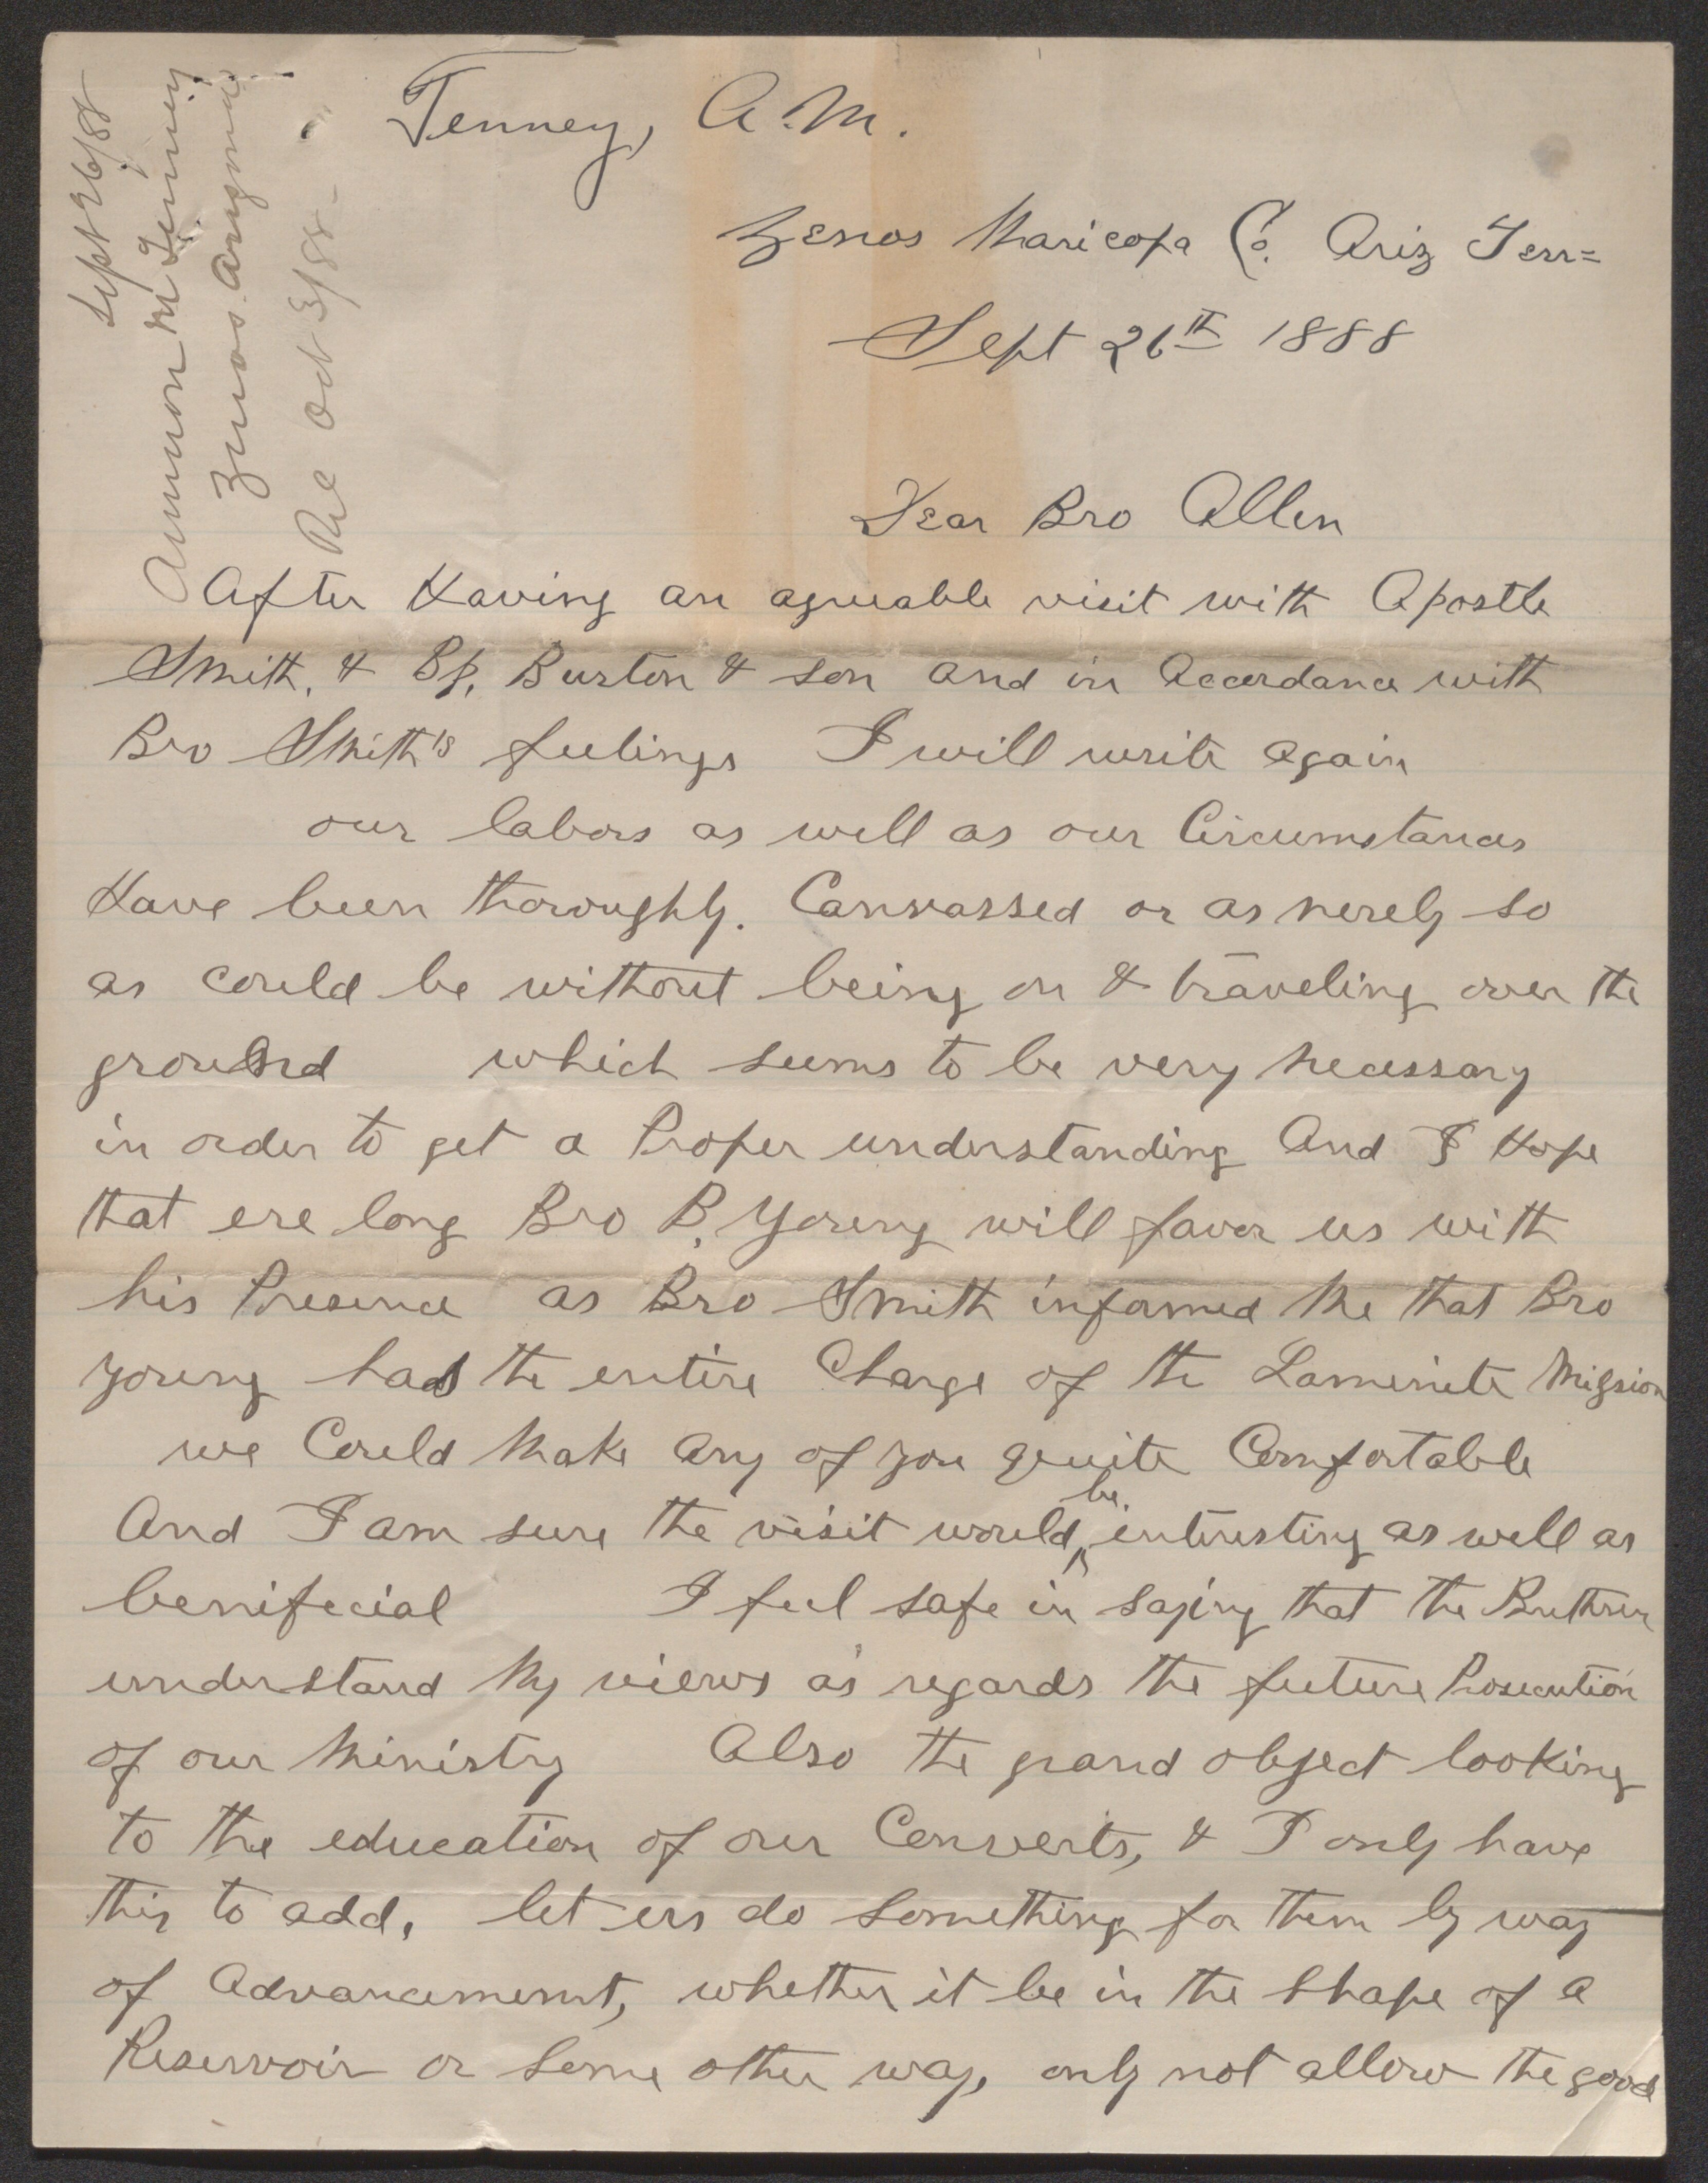 Sept 26/88
Ammon M Tenney
Zenos Arizona
Rec Oct 3/88 -
Tenney, A. M.
Zenos Maricopa Co. Ariz Terr=
Sept 26th 1888
Dear Bro Allen
After Having an agreeable visit with Apostle
Smith, & Bp. Burton & son and in Accordance with
Bro Smith's feelings I will write again
our labors as well as our Circumstances
Have been thoroughly. Canvassed or as nerely so
as could be without being on & traveling over the
ground which seems to be very necessary
in order to get a Proper understanding And I Hope
that ere long Bro B. Young will favor us with
his Presence as Bro Smith informed Me that Bro
Young has the entire Charge of the Lamenite Mission
we Could Make Any of you quite Comfortable
And I am sure the visit would be interesting as well as
benifecial I feel safe in saying that the Brethren
understand My views as regards the future Prosecution
of our Ministry Also the grand object looking
to the education of our Converts, & I only have
this to add, let us do Something for them by way
of Advancement, whether it be in the Shape of a
Reservoir or Some other way, only not allow the good